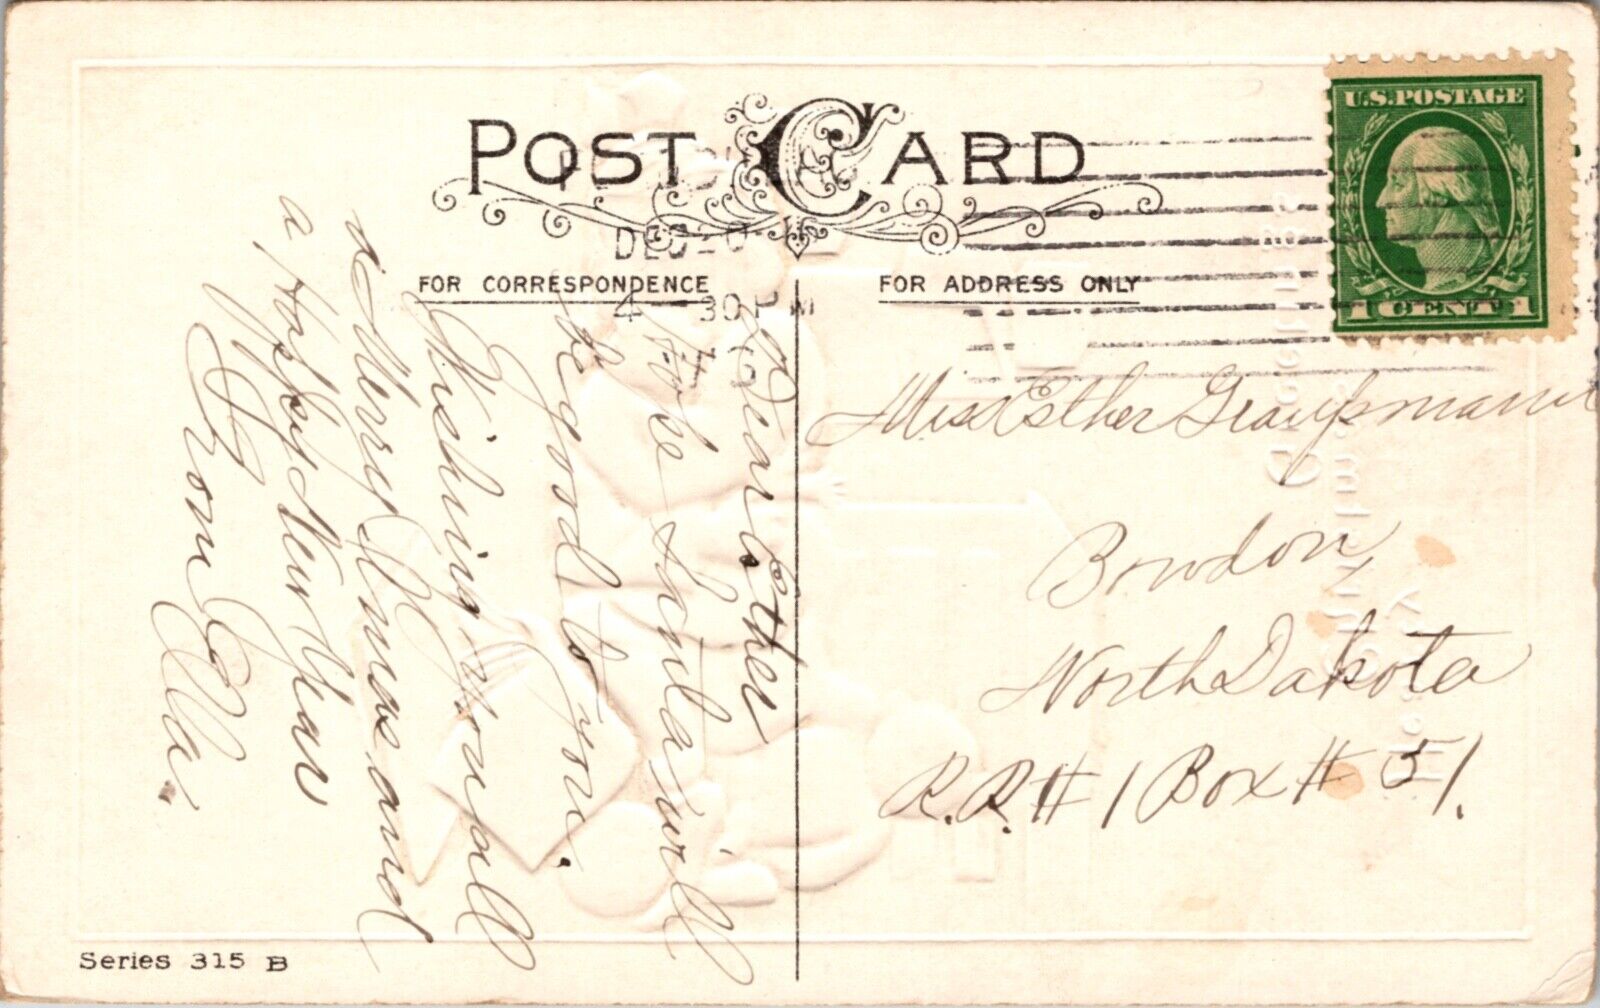 POST CARD
DEC 20
4 - 30 PM
FOR CORRESPONDENCE
FOR ADDRESS ONLY
U.S. POSTAGE
1 CENT 1
Dear Esther
Hope Santa will
be good to you.
Wishing you all
a Merry Xmas and
a Happy New Year
From Ella.
Miss Esther
Bowdon,
North Dakota
R.R. # 1 Box # 51.
Series 315 B